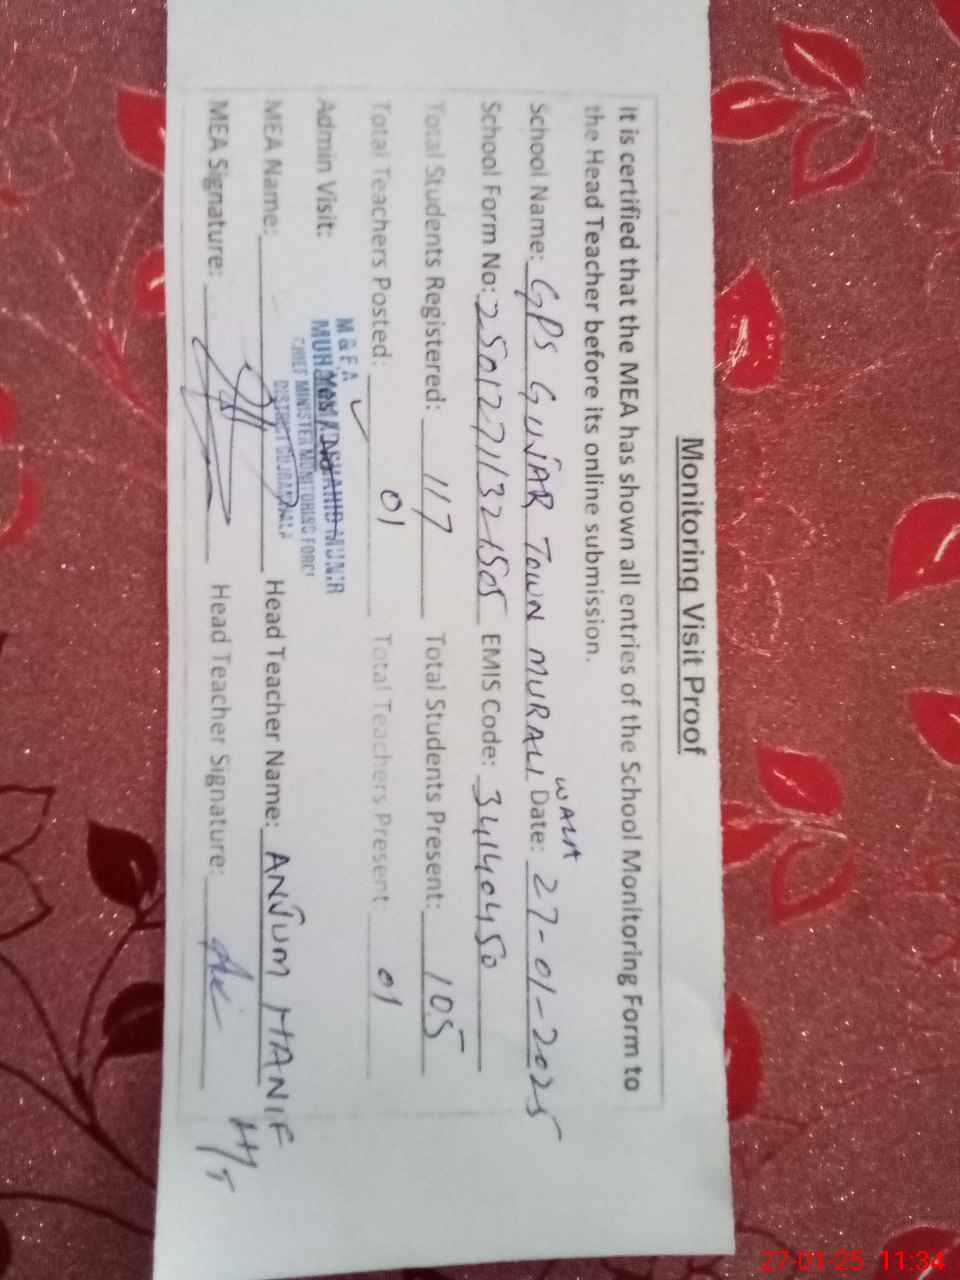 Monitoring Visit Proof
It is certified that the MEA has shown all entries of the School Monitoring Form to
the Head Teacher before its online submission.
School Name: GPS GUJAR TOWN MURALI WALA Date: 27-01-2025
School Form No: EMIS Code: 34140450
Total Students Registered: 117 Total Students Present: 105
Total Teachers Posted: 01 Total Teachers Present: 01
Admin Visit: Yes / No ✓
M & E A
MUHAMMAD SHAHID MUNIR
CHIEF MINISTER MONITORING FORCE
DISTRICT GUJRANWALA
MEA Name: Head Teacher Name: ANJUM HANIF
MEA Signature: Head Teacher Signature: H/T
27-01-25 11:34